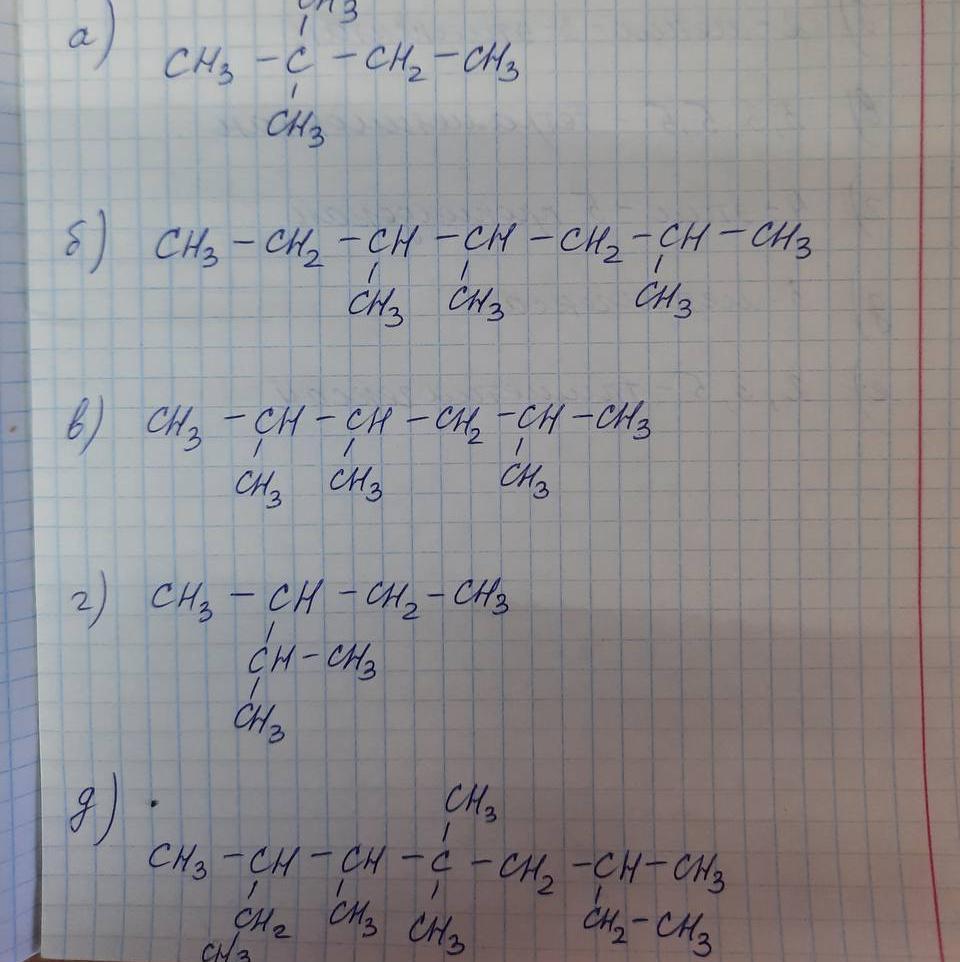 CH₃
а) CH₃ – C – CH₂ – CH₃
CH₃
б) CH₃ – CH₂ – CH – CH – CH₂ – CH – CH₃
CH₃ CH₃ CH₃
в) CH₃ – CH – CH – CH₂ – CH – CH₃
CH₃ CH₃ CH₃
г) CH₃ – CH – CH₂ – CH₃
CH – CH₃
CH₃
д)
CH₃
CH₃ – CH – CH – C – CH₂ – CH – CH₃
CH₂ CH₃ CH₃ CH₂ – CH₃
CH₃